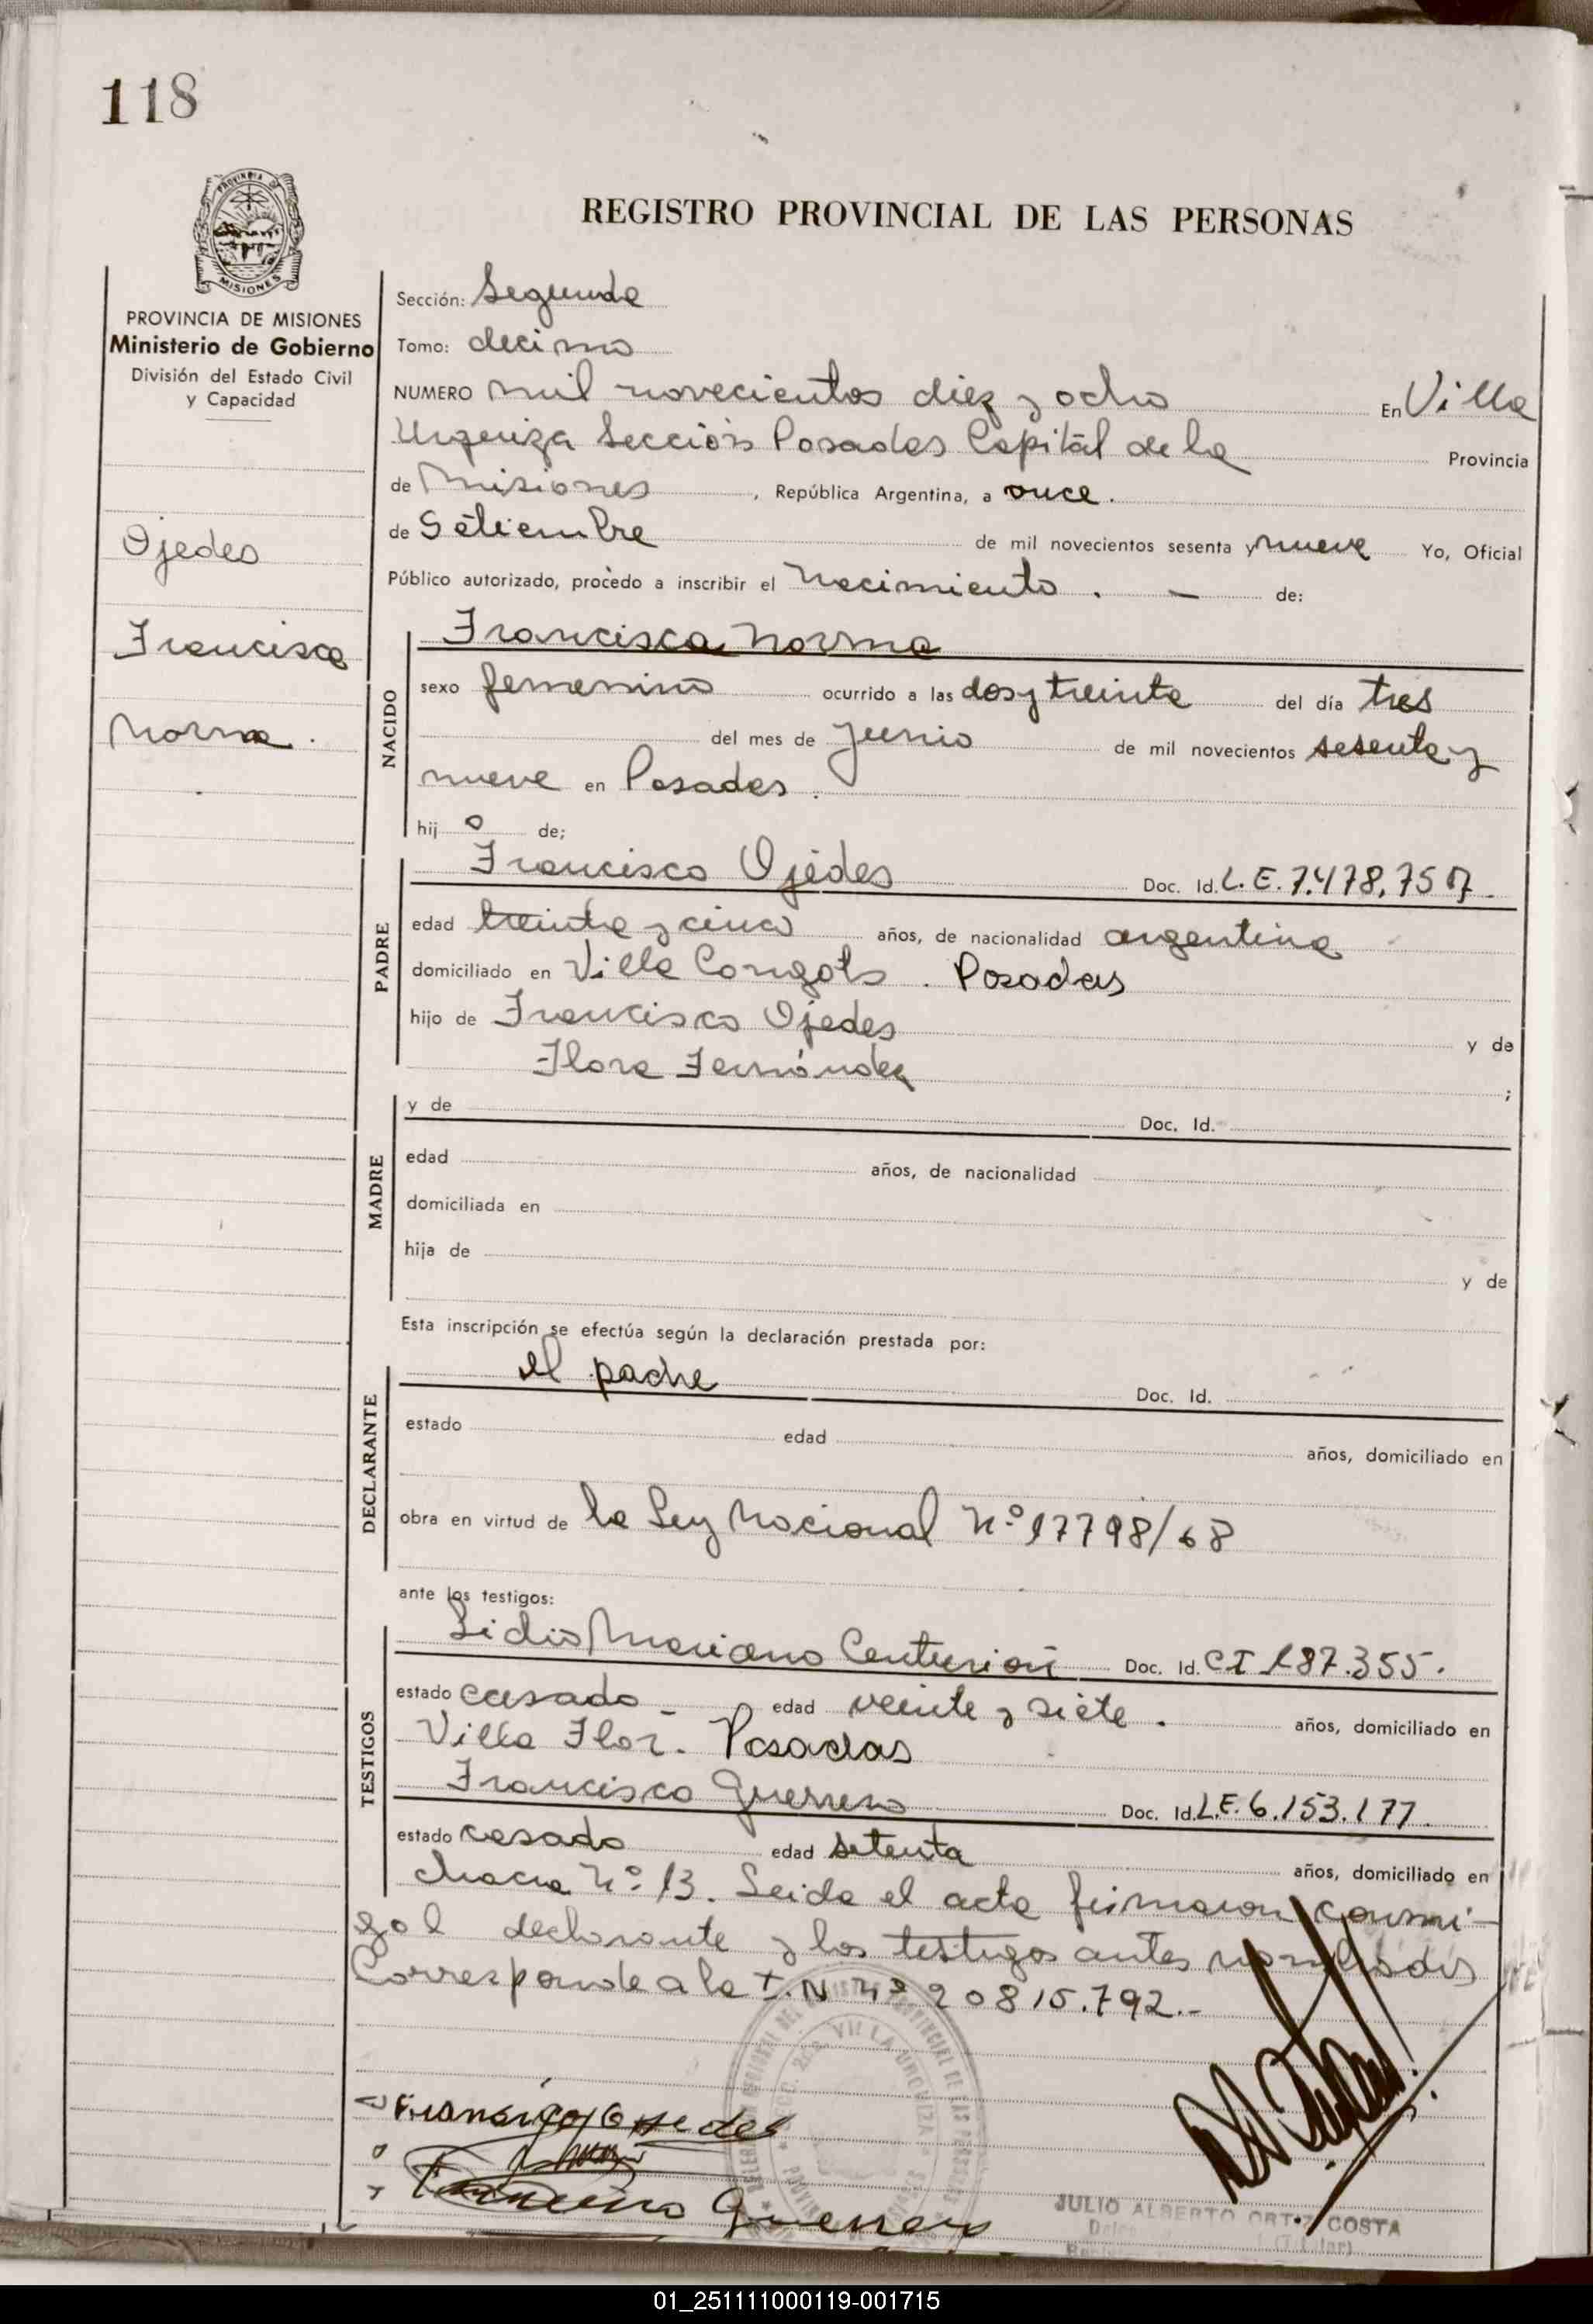 118
PROVINCIA DE
MISIONES
REGISTRO PROVINCIAL DE LAS PERSONAS
PROVINCIA DE MISIONES
Ministerio de Gobierno
División del Estado Civil
y Capacidad
Ojedes
Francisca
Norma.
Sección: Segunda
Tomo: decimo
NUMERO mil novecientos diez y ocho En Villa
Urquiza Sección Posadas Capital de la Provincia
de Misiones, República Argentina, a once.
de Setiembre de mil novecientos sesenta y nueve Yo, Oficial
Público autorizado, procedo a inscribir el Nacimiento. — de:
NACIDO
Francisca Norma
sexo femenino ocurrido a las dos y treinta del día tres
del mes de Junio de mil novecientos sesenta y
nueve en Posadas.
hij o de;
PADRE
Francisco Ojedes Doc. Id. L.E. 7.478.757.
edad treinta y cinco años, de nacionalidad argentina
domiciliado en Villa Longota. Posadas
hijo de Francisco Ojedes y de
Flora Fernández ;
MADRE
y de Doc. Id.
edad años, de nacionalidad
domiciliada en
hija de y de
Esta inscripción se efectúa según la declaración prestada por:
DECLARANTE
el padre Doc. Id.
estado edad años, domiciliado en
obra en virtud de la Ley Nacional Nº 17798/68
ante los testigos:
TESTIGOS
Lidio Mariano Centurión Doc. Id. CI 187.355.
estado casado - edad veinte y siete. años, domiciliado en
Villa Flor. Posadas
Francisco Guerrero Doc. Id. L.E. 6.153.177.
estado casado edad setenta años, domiciliado en
chacra Nº 13. Leida el acta firmaron conmi-
go l declarante y los testigos antes nombrados
Corresponde a la I.N nº 20815.792.-
Francisco Ojedes
Francisco Guerrero
JULIO ALBERTO ORTIZ COSTA
01_251111000119-001715